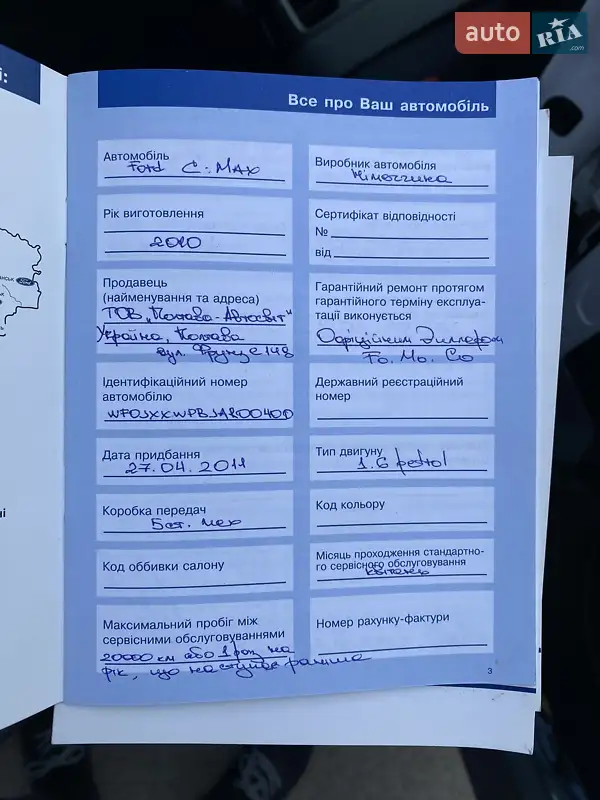 auto RIA .com
і:
Все про Ваш автомобіль
Автомобіль
Ford C-MAX
Виробник автомобіля
Німеччина
Рік виготовлення
2010
Сертифікат відповідності
№
від
Продавець
(найменування та адреса)
ТОВ „Полтава-Автосвіт"
Україна, Полтава
вул. Фрунзе 148
Гарантійний ремонт протягом
гарантійного терміну експлуа-
тації виконується
Офіційним Диллером
Fo. Mo. Co
Ідентифікаційний номер
автомобілю
Державний реєстраційний
номер
Дата придбання
27.04.2011
Тип двигуну
1.6 petrol
Коробка передач
5ст. мех
Код кольору
Код оббивки салону
Місяць проходження стандартно-
го сервісного обслуговування
квітень
Максимальний пробіг між
сервісними обслуговуваннями
20000 км або 1 раз на
рік, що наступає раніше
Номер рахунку-фактури
3